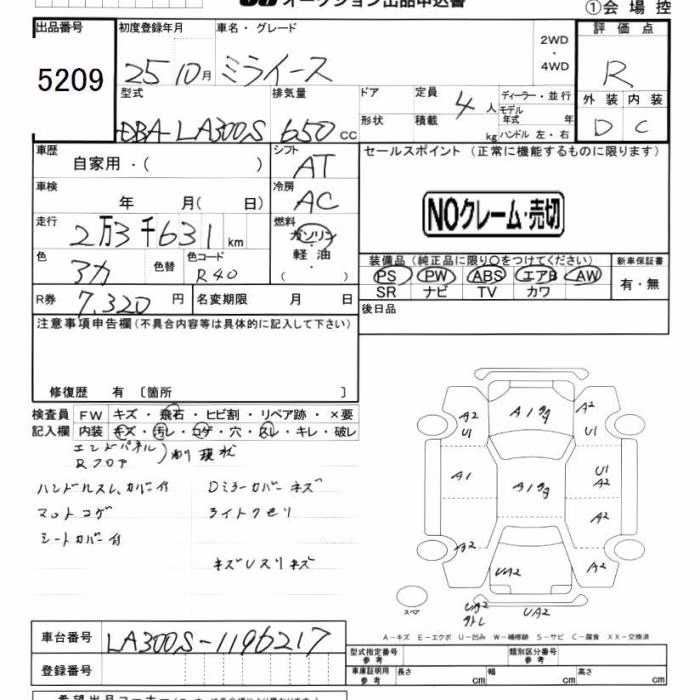 オークション出品申込書
①会場控
出品番号 初度登録年月 車名・グレード 2WD・4WD 評価点
5209 25 10月 ミライース R
型式 排気量 ドア 定員 4人 ディーラー・並行 外装 内装
モデル年式 年
DBA-LA300S 650cc 形状 積載 kg ハンドル 左・右 D C
車歴 シフト セールスポイント (正常に機能するものに限ります)
自家用・( ) AT
車検 冷房
年 月( 日) AC
NOクレーム・売切
走行 燃料
2万3千631km ガソリン・軽油・( )
色 色替 色コード 装備品(純正品に限り○をつけてください) 新車保証書
R40 PS PW ABS エアB AW 有・無
SR ナビ TV カワ
R券 7,320円 名変期限 月 日 後日品
注意事項申告欄(不具合内容等は具体的に記入して下さい)
修復歴 有 〔箇所 〕
検査員 FW キズ・飛石・ヒビ割・リペア跡・×要
記入欄 内装 キズ・汚レ・コゲ・穴・スレ・キレ・破レ
エンドパネル
Rフロア
ハンドルスレ、カバー付 Dミラーカバーキズ
マットコゲ ライトクモリ
シートカバー付
A2 A1 A2
U1 U1
A1 A1 U1
A2
A2
A2 A2
UA2
スペア
A-キズ E-エクボ U-凹み W-補修跡 S-サビ C-腐食 XX-交換済
車台番号 LA300S-1196217 型式指定番号 参考 類別区分番号 参考
登録番号 車庫証明用 参考 長さ cm 幅 cm 高さ cm